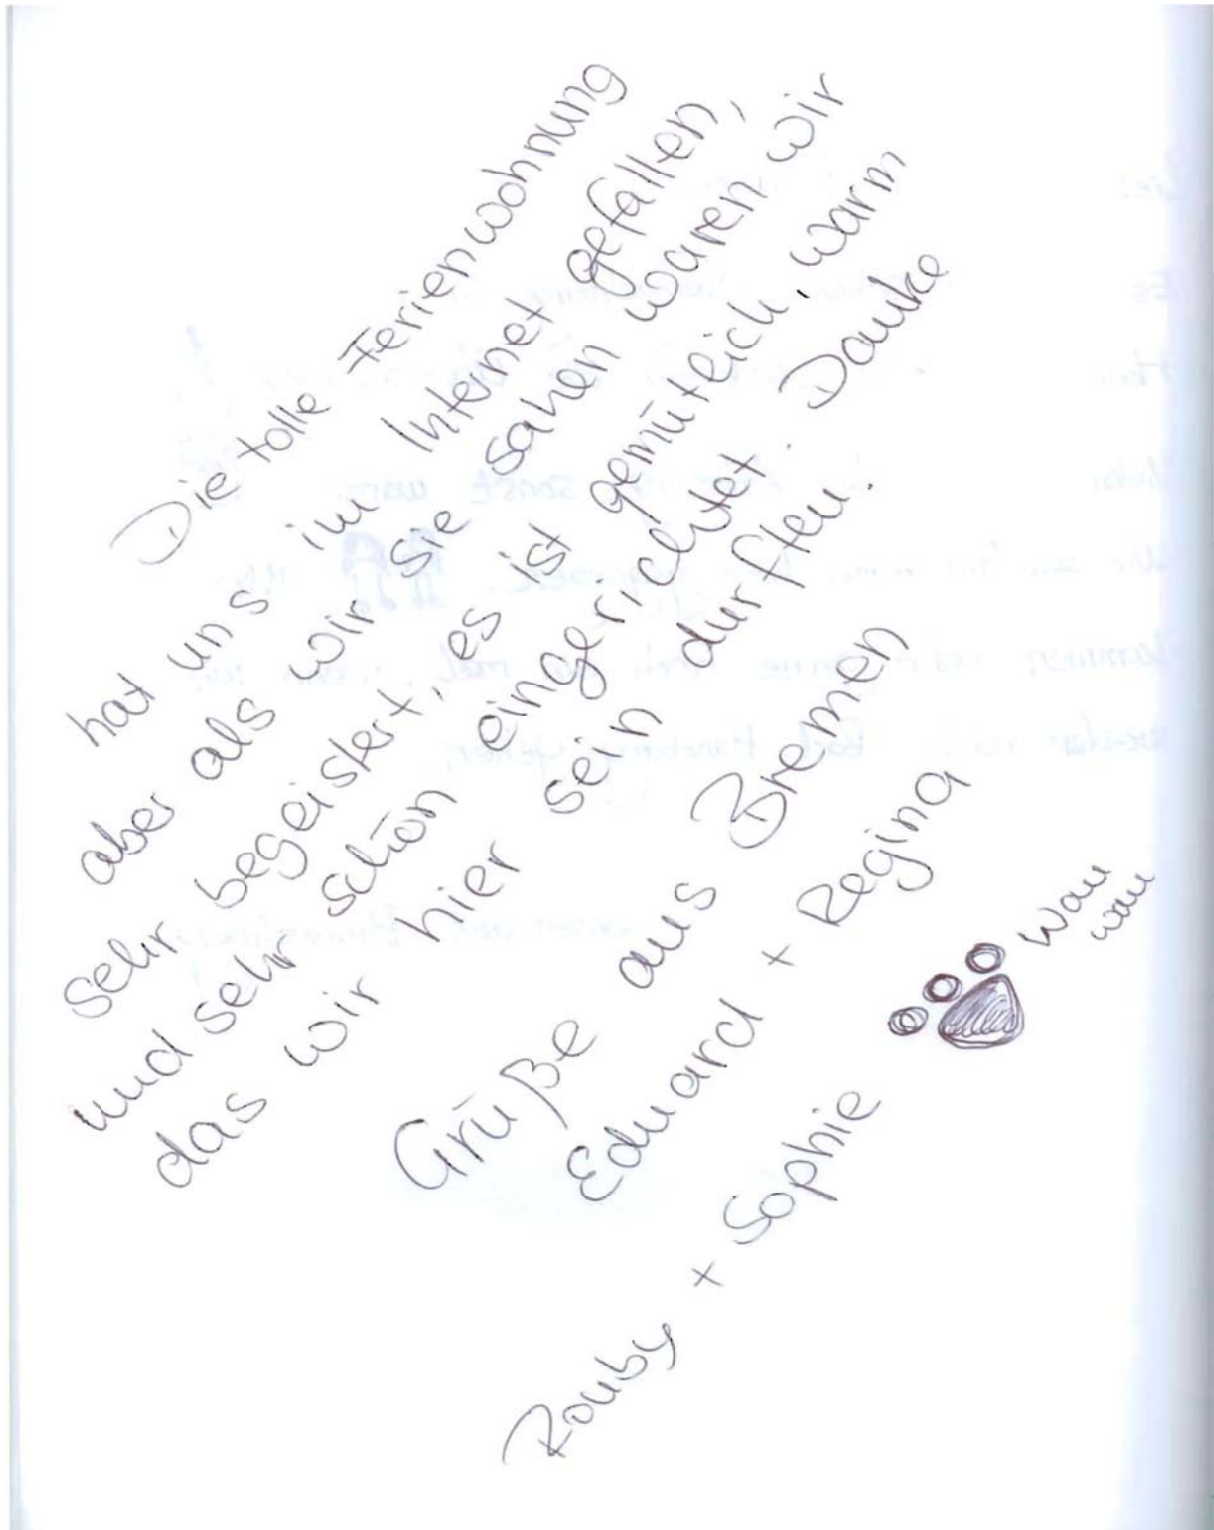 Die tolle Ferienwohnung
hat uns im Internet gefallen,
aber als wir sie sahen waren wir
sehr begeistert, es ist gemütlich, warm
und sehr schön eingerichtet. Danke
das wir hier sein durften.
Grüße aus Bremen
Eduard + Regina
Rouby + Sophie
Wau
wau